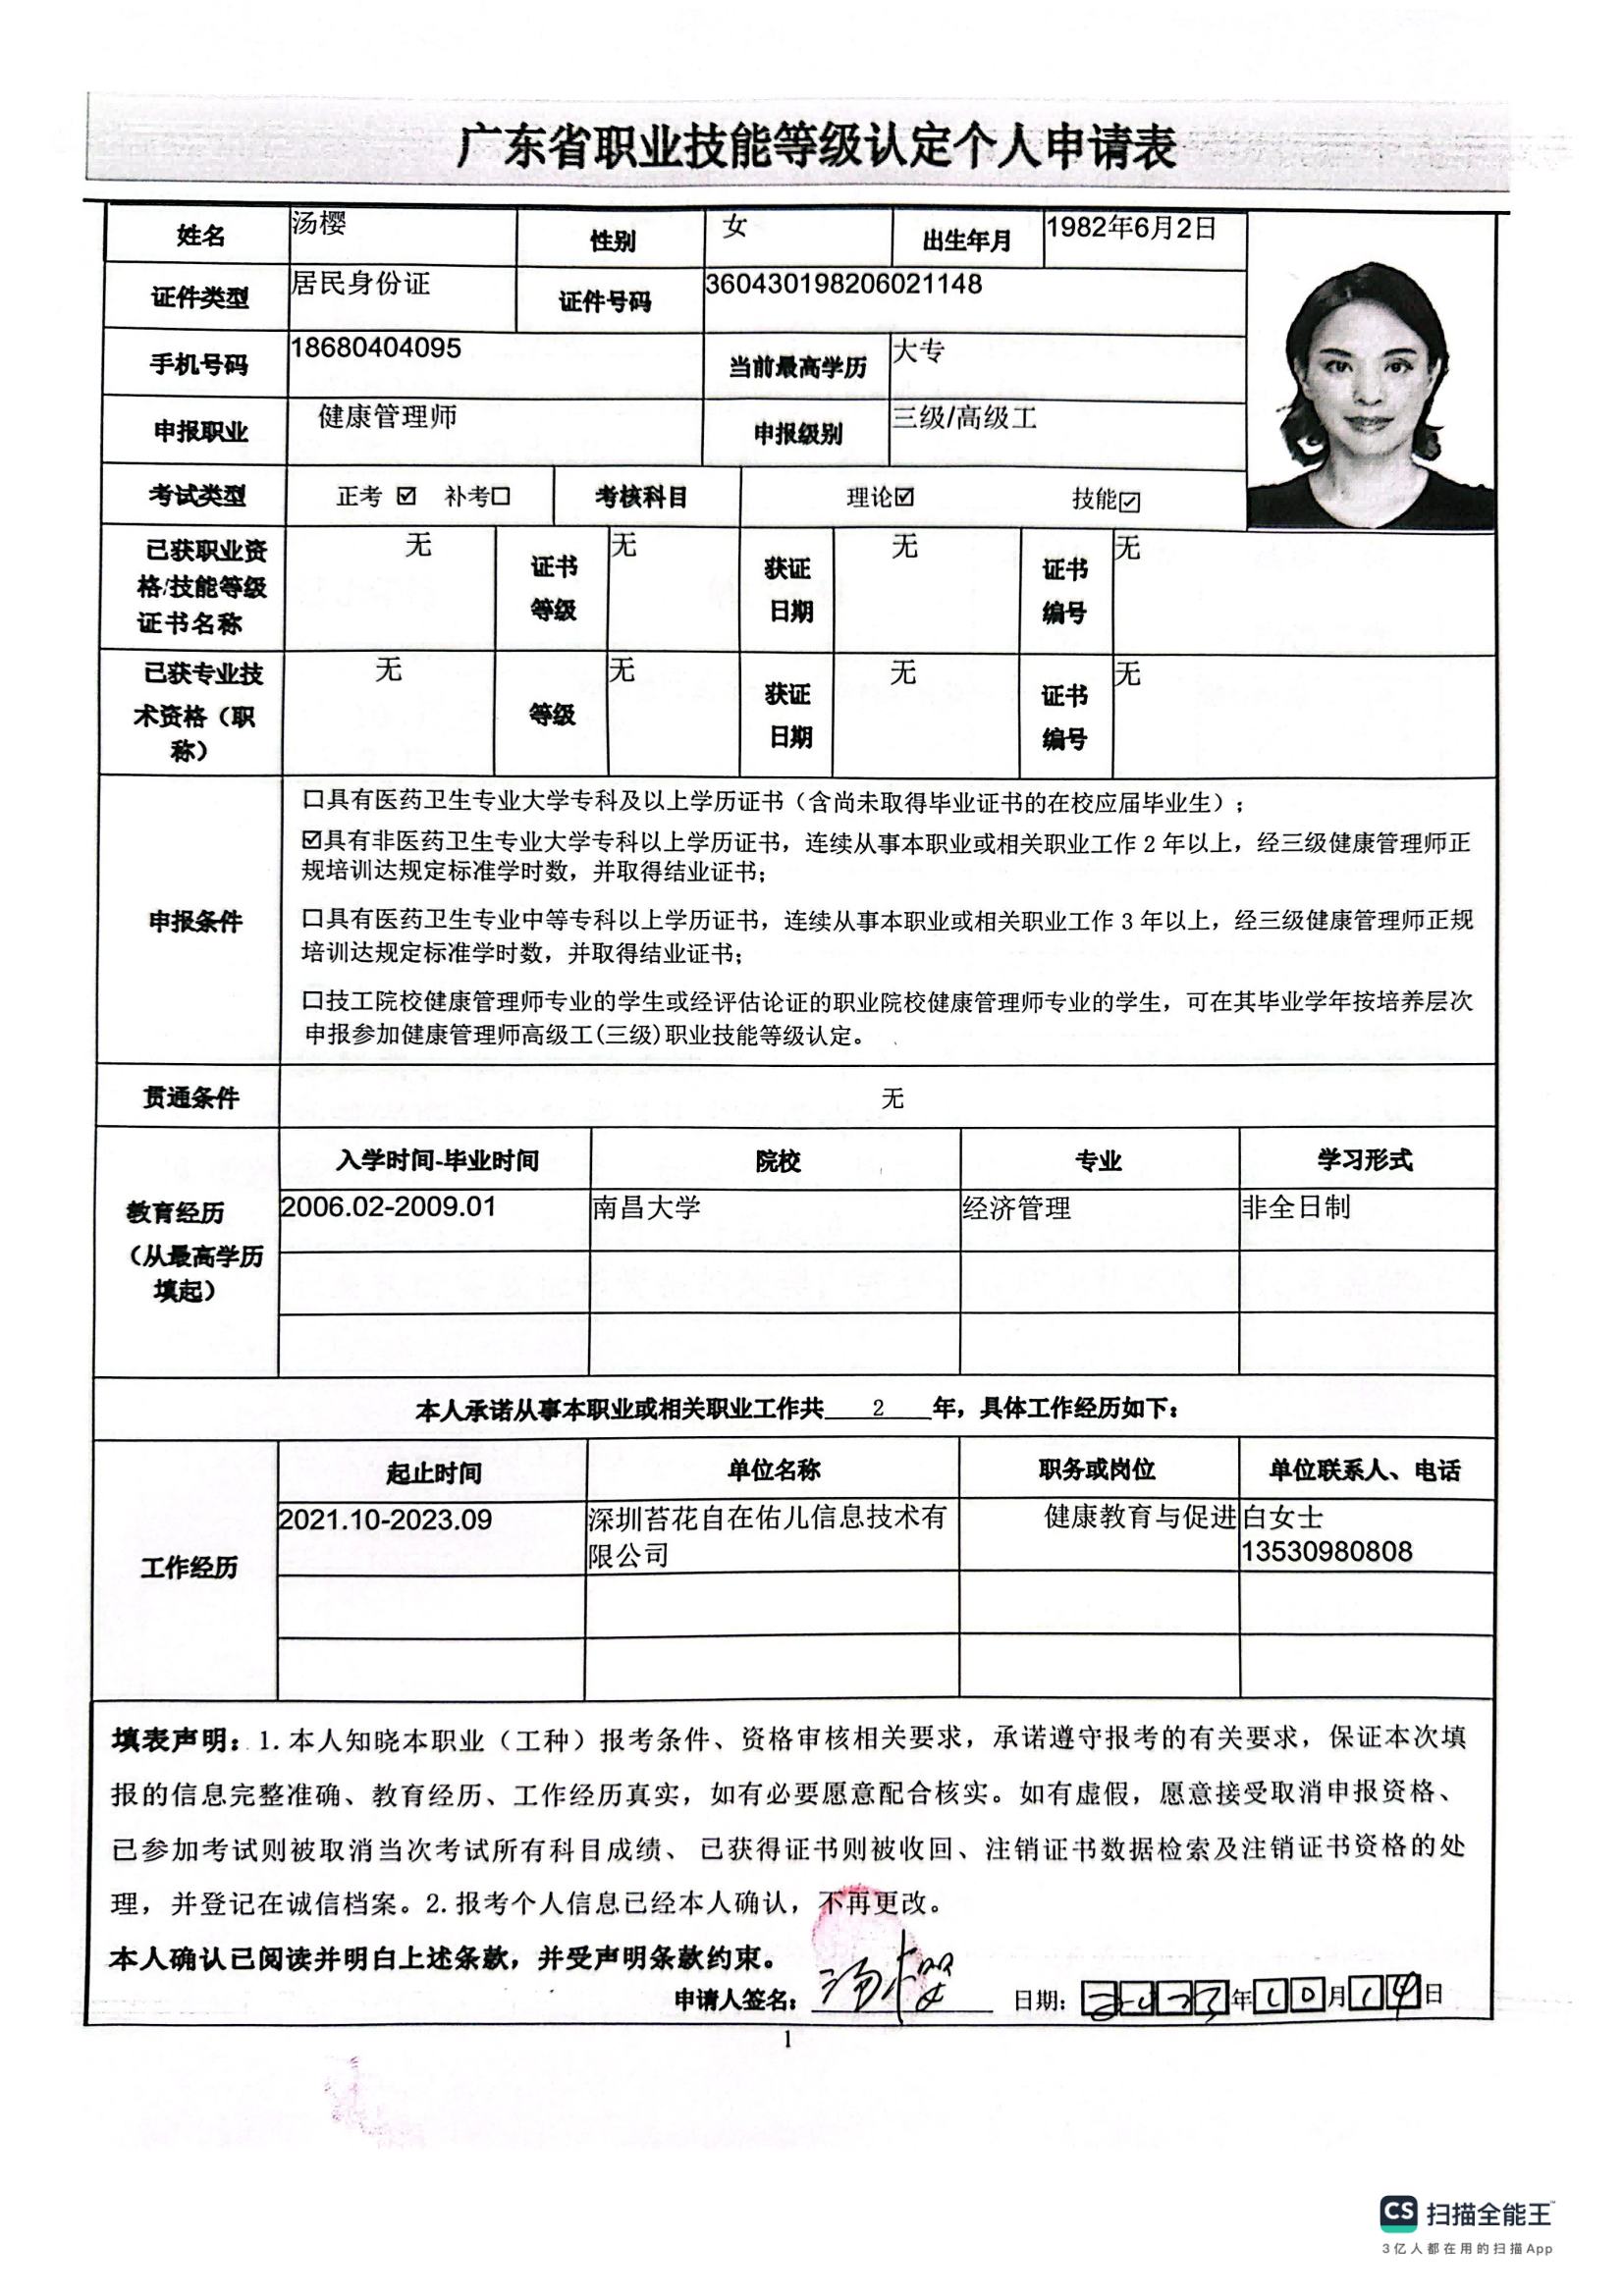 广东省职业技能等级认定个人申请表
姓名 汤樱 性别 女 出生年月 1982年6月2日
证件类型 居民身份证 证件号码 360430198206021148
手机号码 18680404095 当前最高学历 大专
申报职业 健康管理师 申报级别 三级/高级工
考试类型 正考 ☑ 补考☐ 考核科目 理论☑ 技能☑
已获职业资格/技能等级证书名称 无 证书等级 无 获证日期 无 证书编号 无
已获专业技术资格（职称） 无 等级 无 获证日期 无 证书编号 无
申报条件
☐具有医药卫生专业大学专科及以上学历证书（含尚未取得毕业证书的在校应届毕业生）；
☑具有非医药卫生专业大学专科以上学历证书，连续从事本职业或相关职业工作 2 年以上，经三级健康管理师正
规培训达规定标准学时数，并取得结业证书；
☐具有医药卫生专业中等专科以上学历证书，连续从事本职业或相关职业工作 3 年以上，经三级健康管理师正规
培训达规定标准学时数，并取得结业证书；
☐技工院校健康管理师专业的学生或经评估论证的职业院校健康管理师专业的学生，可在其毕业学年按培养层次
申报参加健康管理师高级工(三级)职业技能等级认定。
贯通条件 无
教育经历（从最高学历填起）
入学时间-毕业时间 院校 专业 学习形式
2006.02-2009.01 南昌大学 经济管理 非全日制
本人承诺从事本职业或相关职业工作共 2 年，具体工作经历如下：
工作经历
起止时间 单位名称 职务或岗位 单位联系人、电话
2021.10-2023.09 深圳苔花自在佑儿信息技术有限公司 健康教育与促进 白女士 13530980808
填表声明：1.本人知晓本职业（工种）报考条件、资格审核相关要求，承诺遵守报考的有关要求，保证本次填
报的信息完整准确、教育经历、工作经历真实，如有必要愿意配合核实。如有虚假，愿意接受取消申报资格、
已参加考试则被取消当次考试所有科目成绩、 已获得证书则被收回、注销证书数据检索及注销证书资格的处
理，并登记在诚信档案。2.报考个人信息已经本人确认，不再更改。
本人确认已阅读并明白上述条款，并受声明条款约束。
申请人签名：汤樱 日期：2023年10月14日
1
CS 扫描全能王™
3亿人都在用的扫描App